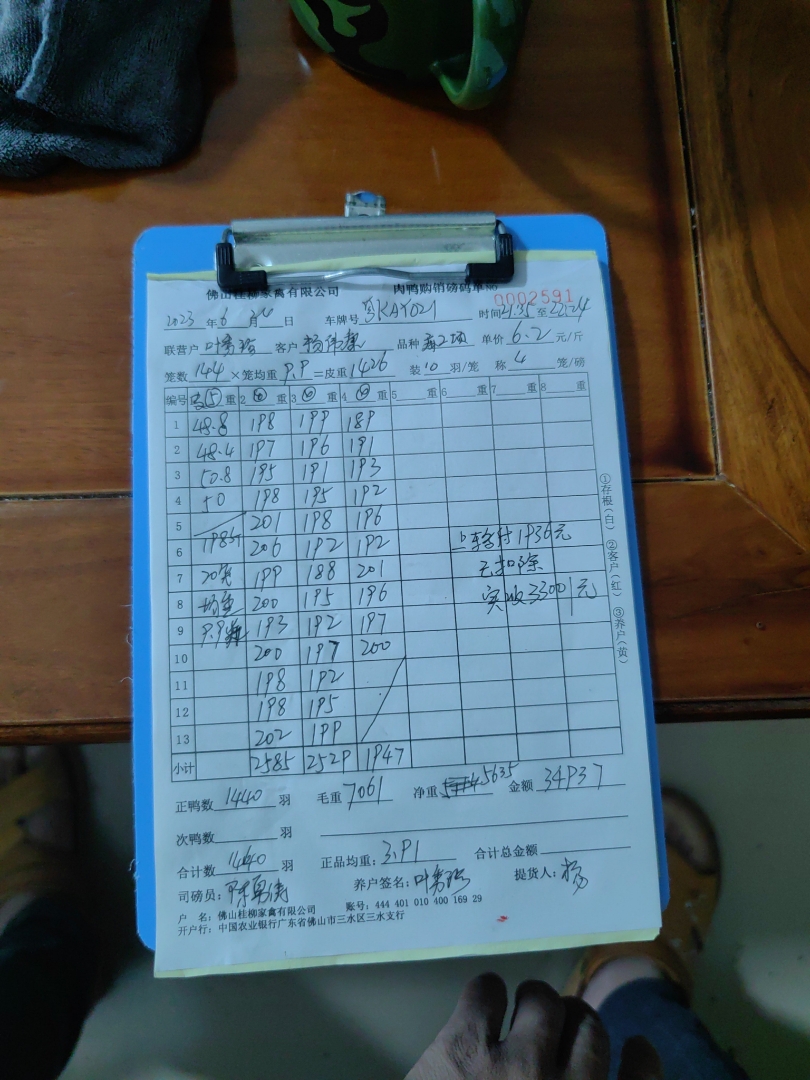 佛山桂柳家禽有限公司 肉鸭购销磅码单 №0002591
2023年6月24日 车牌号 粤KAY021 时间21:35至22:24
联营户 客户 品种 单价6.2元/斤
笼数144×笼均重9.9=皮重1426 装10羽/笼 称4笼/磅
编号 ⑤重 2 ④重 3 ④重 4 ④重 5 重 6 重 7 重 8 重
1 48.8 198 199 189
2 48.4 197 196 191
3 50.8 195 191 193
4 50 198 195 192
5 201 198 196
6 198斤 206 192 192
7 20笼 199 188 201
8 均重 200 195 196
9 9.9 193 192 197
10 200 197 200
11 198 192
12 198 195
13 202 199
小计 2585 2529 1947
上车多付1936元
已扣除
实收33001元
①存根(白) ②客户(红) ③养户(黄)
正鸭数1440羽 毛重7061 净重5635 金额34937
次鸭数 羽
合计数1440羽 正品均重:3.91 合计总金额
司磅员: 养户签名: 提货人:杨
户 名:佛山桂柳家禽有限公司 账号:444 401 010 400 169 29
开户行:中国农业银行广东省佛山市三水区三水支行